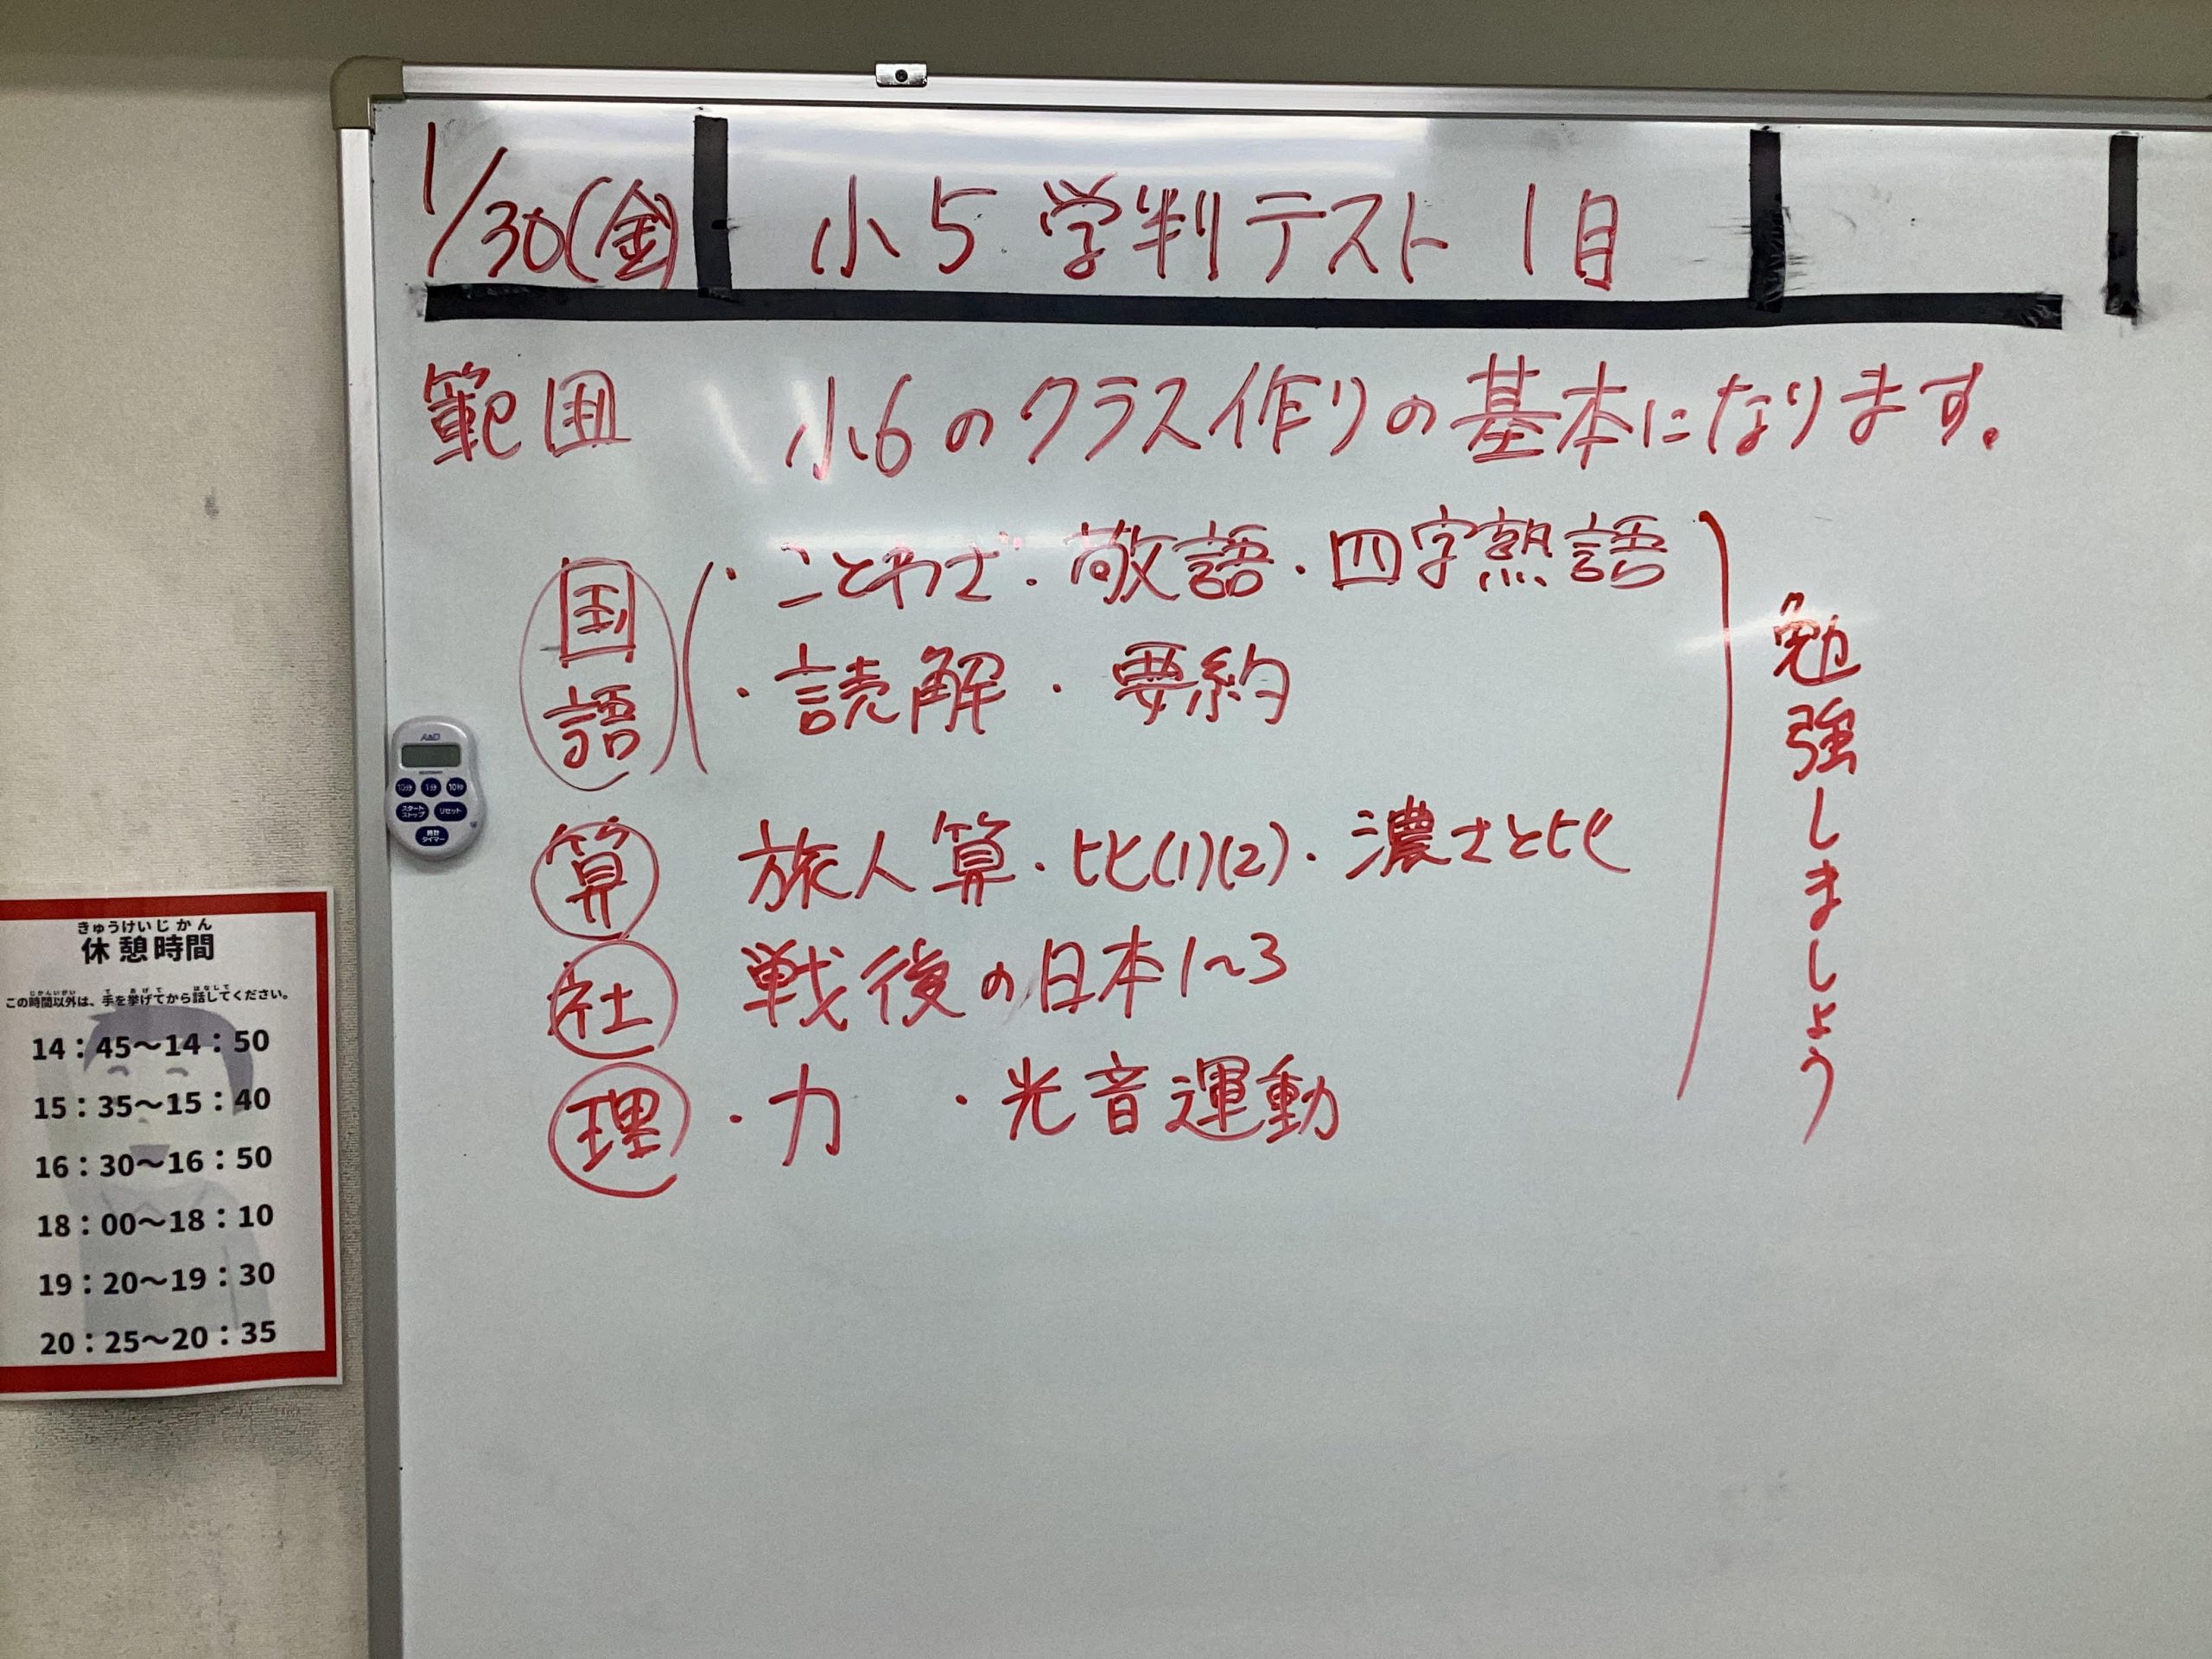 1/30(金) 小5 学判テスト 1月
範囲 小6のクラス作りの基本になります。
国語
・ことわざ・敬語・四字熟語
・読解・要約
算 旅人算・比(1)(2)・濃さと比
社 戦後の日本1~3
理 ・力 ・光音運動
勉強しましょう
A&D
10分 1分 10秒
スタート ストップ リセット
時計 タイマー
きゅうけいじかん
休憩時間
じかんいがい て あ はな
この時間以外は、手を挙げてから話してください。
14:45〜14:50
15:35〜15:40
16:30〜16:50
18:00〜18:10
19:20〜19:30
20:25〜20:35